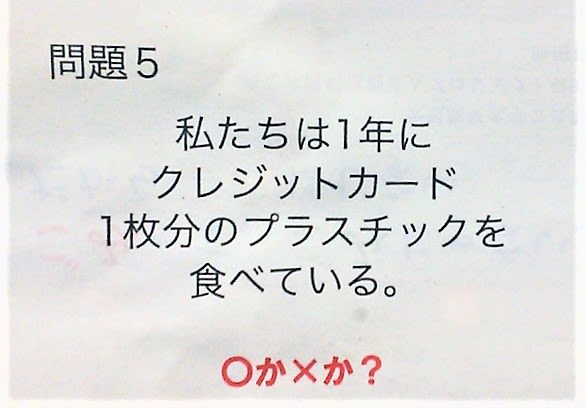 問題5
私たちは1年に
クレジットカード
1枚分のプラスチックを
食べている。
〇か×か？